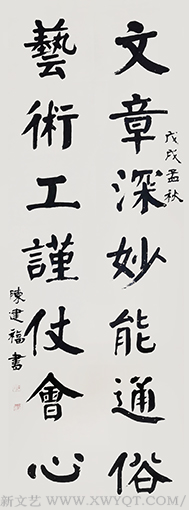 文章深妙能通俗
戊戌孟秋
藝術工謹仗會心
陳建福書
新文艺 WWW.XWYQT.COM